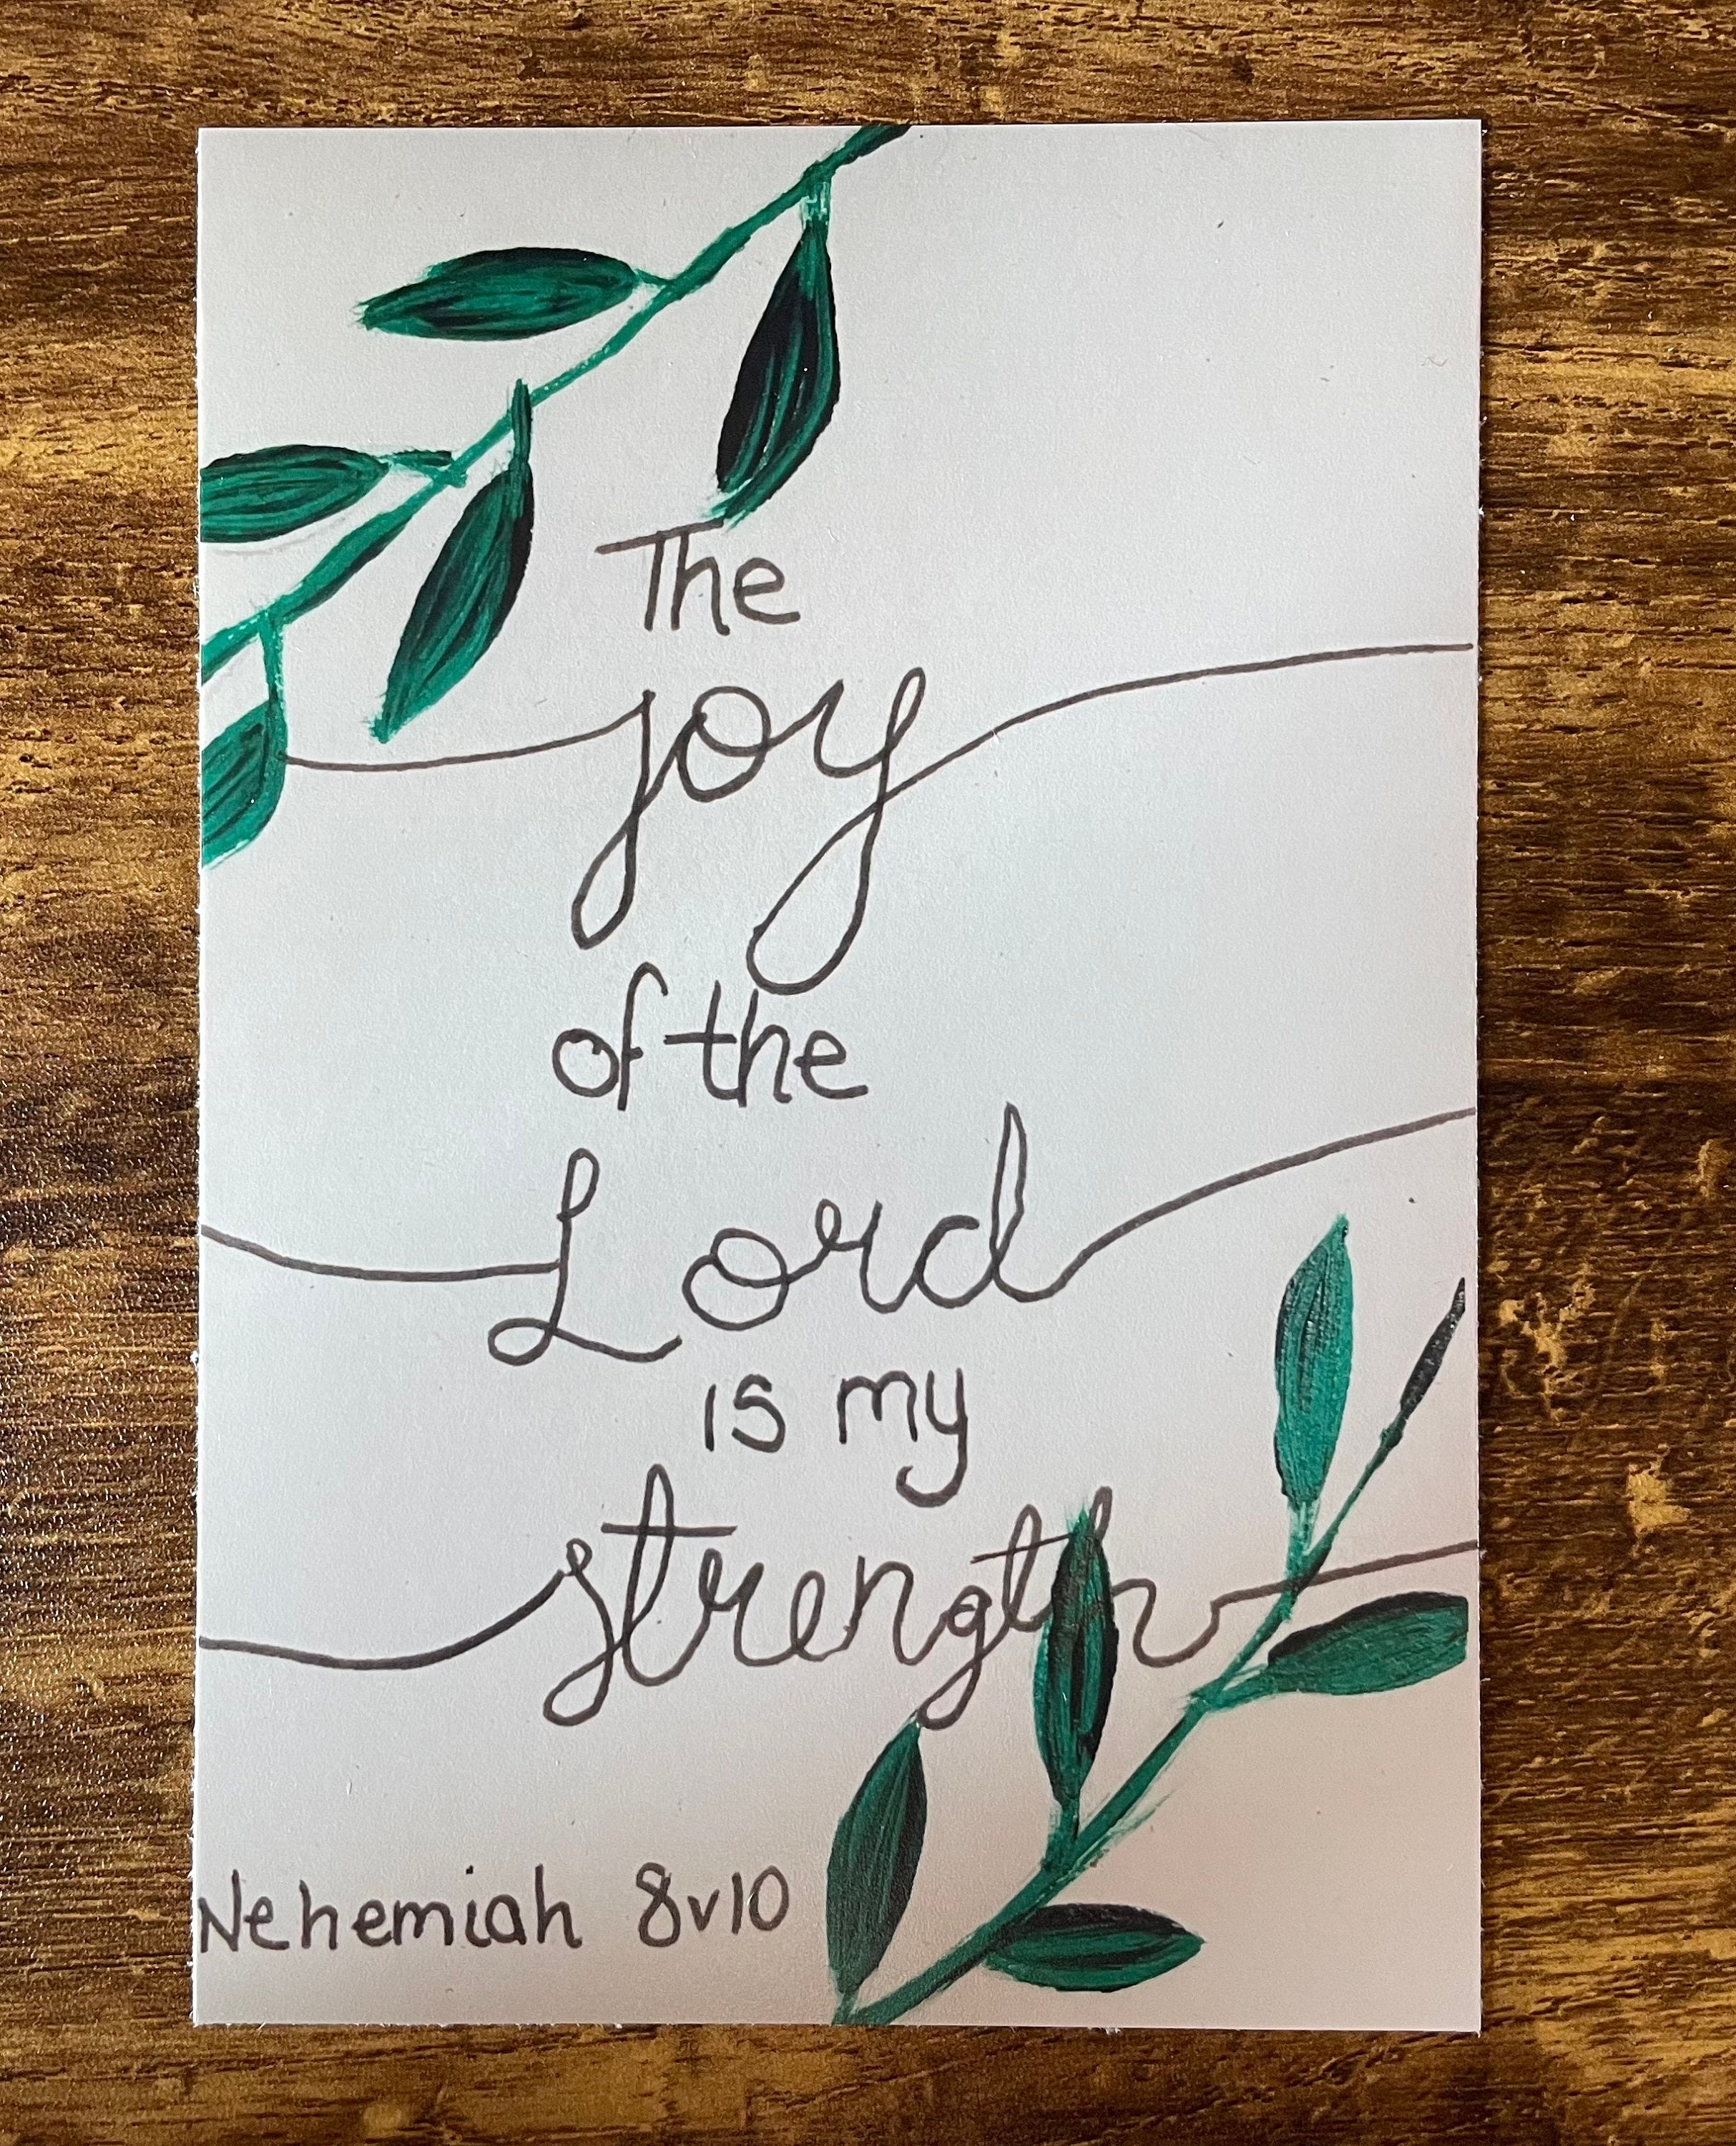 The
joy
of the
Lord
is my
strength
Nehemiah 8v10